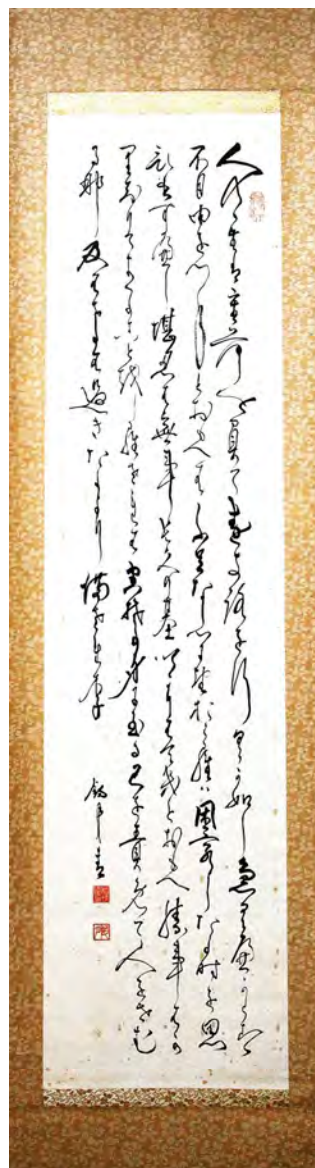 人の一生は重荷を負て遠き路を行くが如し急べからず
不自由を常とおもへば不足なし心に望おこらば困窮したる時を思
ひ出すべし堪忍は無事長久の基いかりは敵とおもへ勝事ばか
り知りてまくる事を知らざれば害其身に至る己を責て人をせむ
るな及ばざるは過ぎたるより